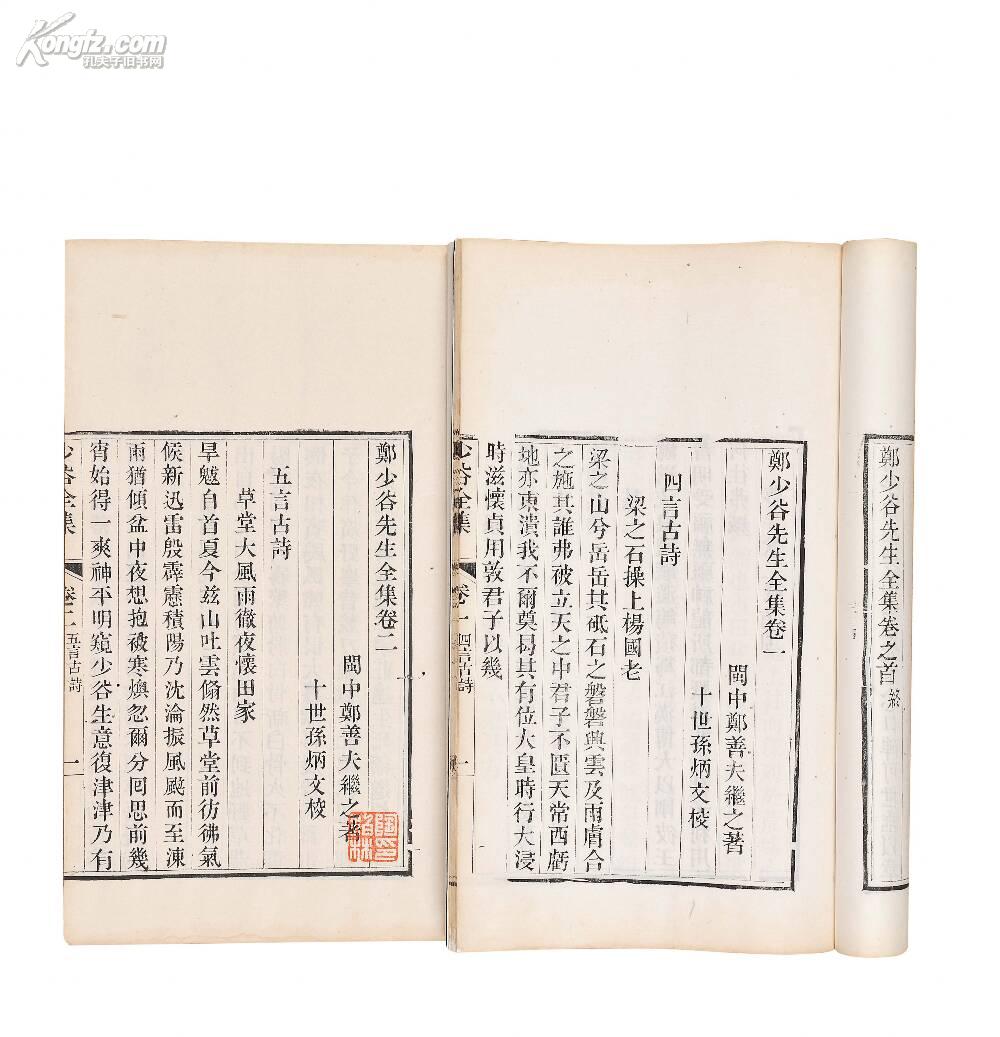 Kongfz.com
孔夫子旧书网
鄭少谷先生全集卷之首 終
鄭少谷先生全集卷一
閩中鄭善夫繼之著
十世孫炳文校
四言古詩
梁之石操上楊國老
梁之山兮岳岳其砥石之磐磐興雲及雨膚合
之施其誰弗被立天之中君子不匱天常西虧
地亦東潰我不爾奠曷其有位大皇時行大浸
時滋懷貞用敦君子以幾
少谷全集 卷一 四言古詩 一
鄭少谷先生全集卷二
閩中鄭善夫繼之著
十世孫炳文校
五言古詩
草堂大風雨徹夜懷田家
旱魃自首夏今兹山吐雲翛然草堂前彷彿氣
候新迅雷殷霹靂積陽乃沈淪振風颷而至涷
雨猶傾盆中夜想抱被寒燠忽爾分囘思前幾
宵始得一爽神平明窺少谷生意復津津乃有
少谷全集 卷二 五言古詩 一